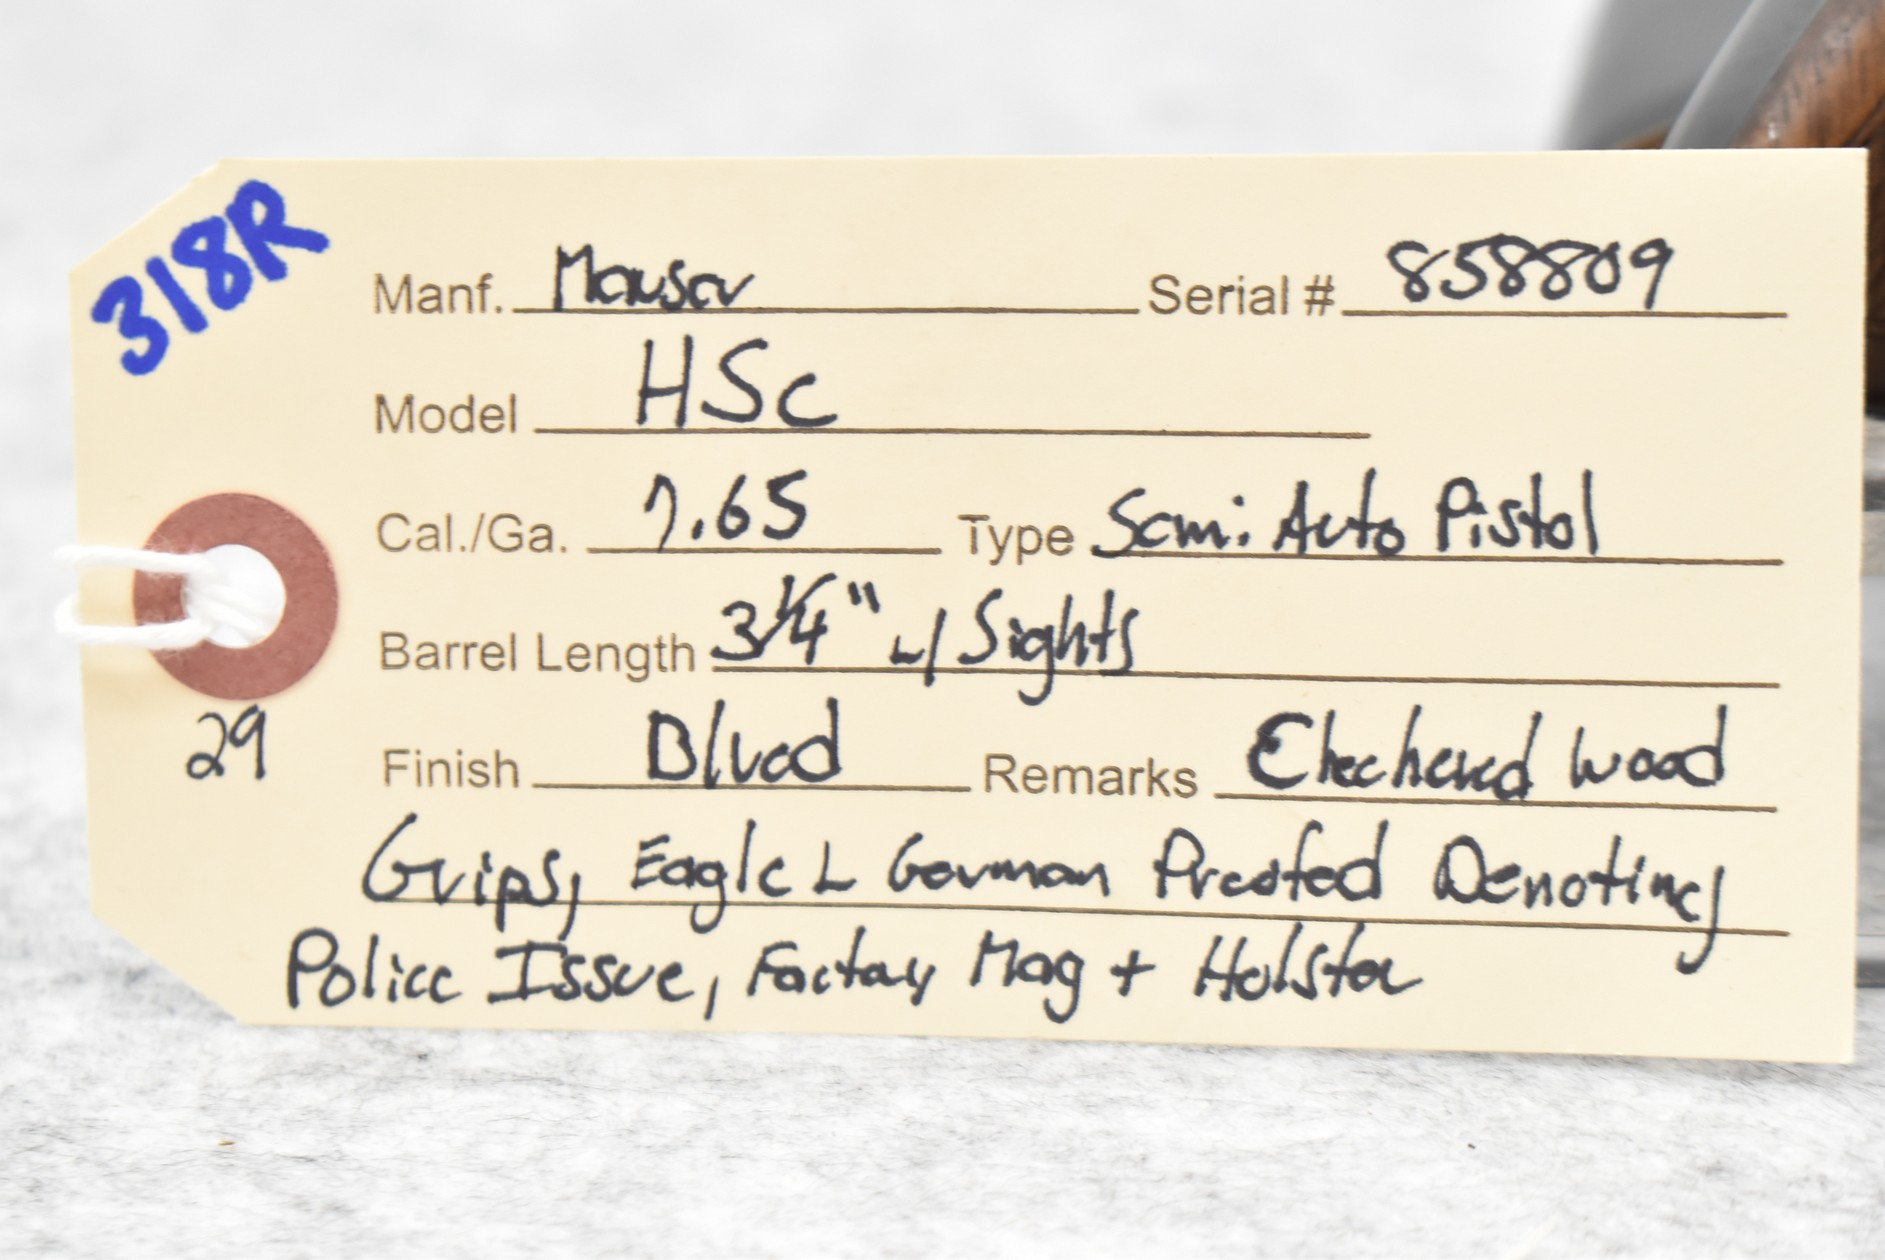 318R
Manf. Mauser Serial # 858809
Model HSc
Cal./Ga. 7.65 Type Semi Auto Pistol
Barrel Length 3 1/4" w/ Sights
29
Finish Blued Remarks Checkered Wood
Grips, Eagle L German Proofed Denoting
Police Issue, Factory Mag + Holster